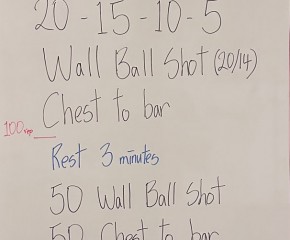 20 - 15 - 10 - 5
Wall Ball Shot (20/14)
Chest to bar
100 rep
Rest 3 minutes
50 Wall Ball Shot
50 Chest to bar